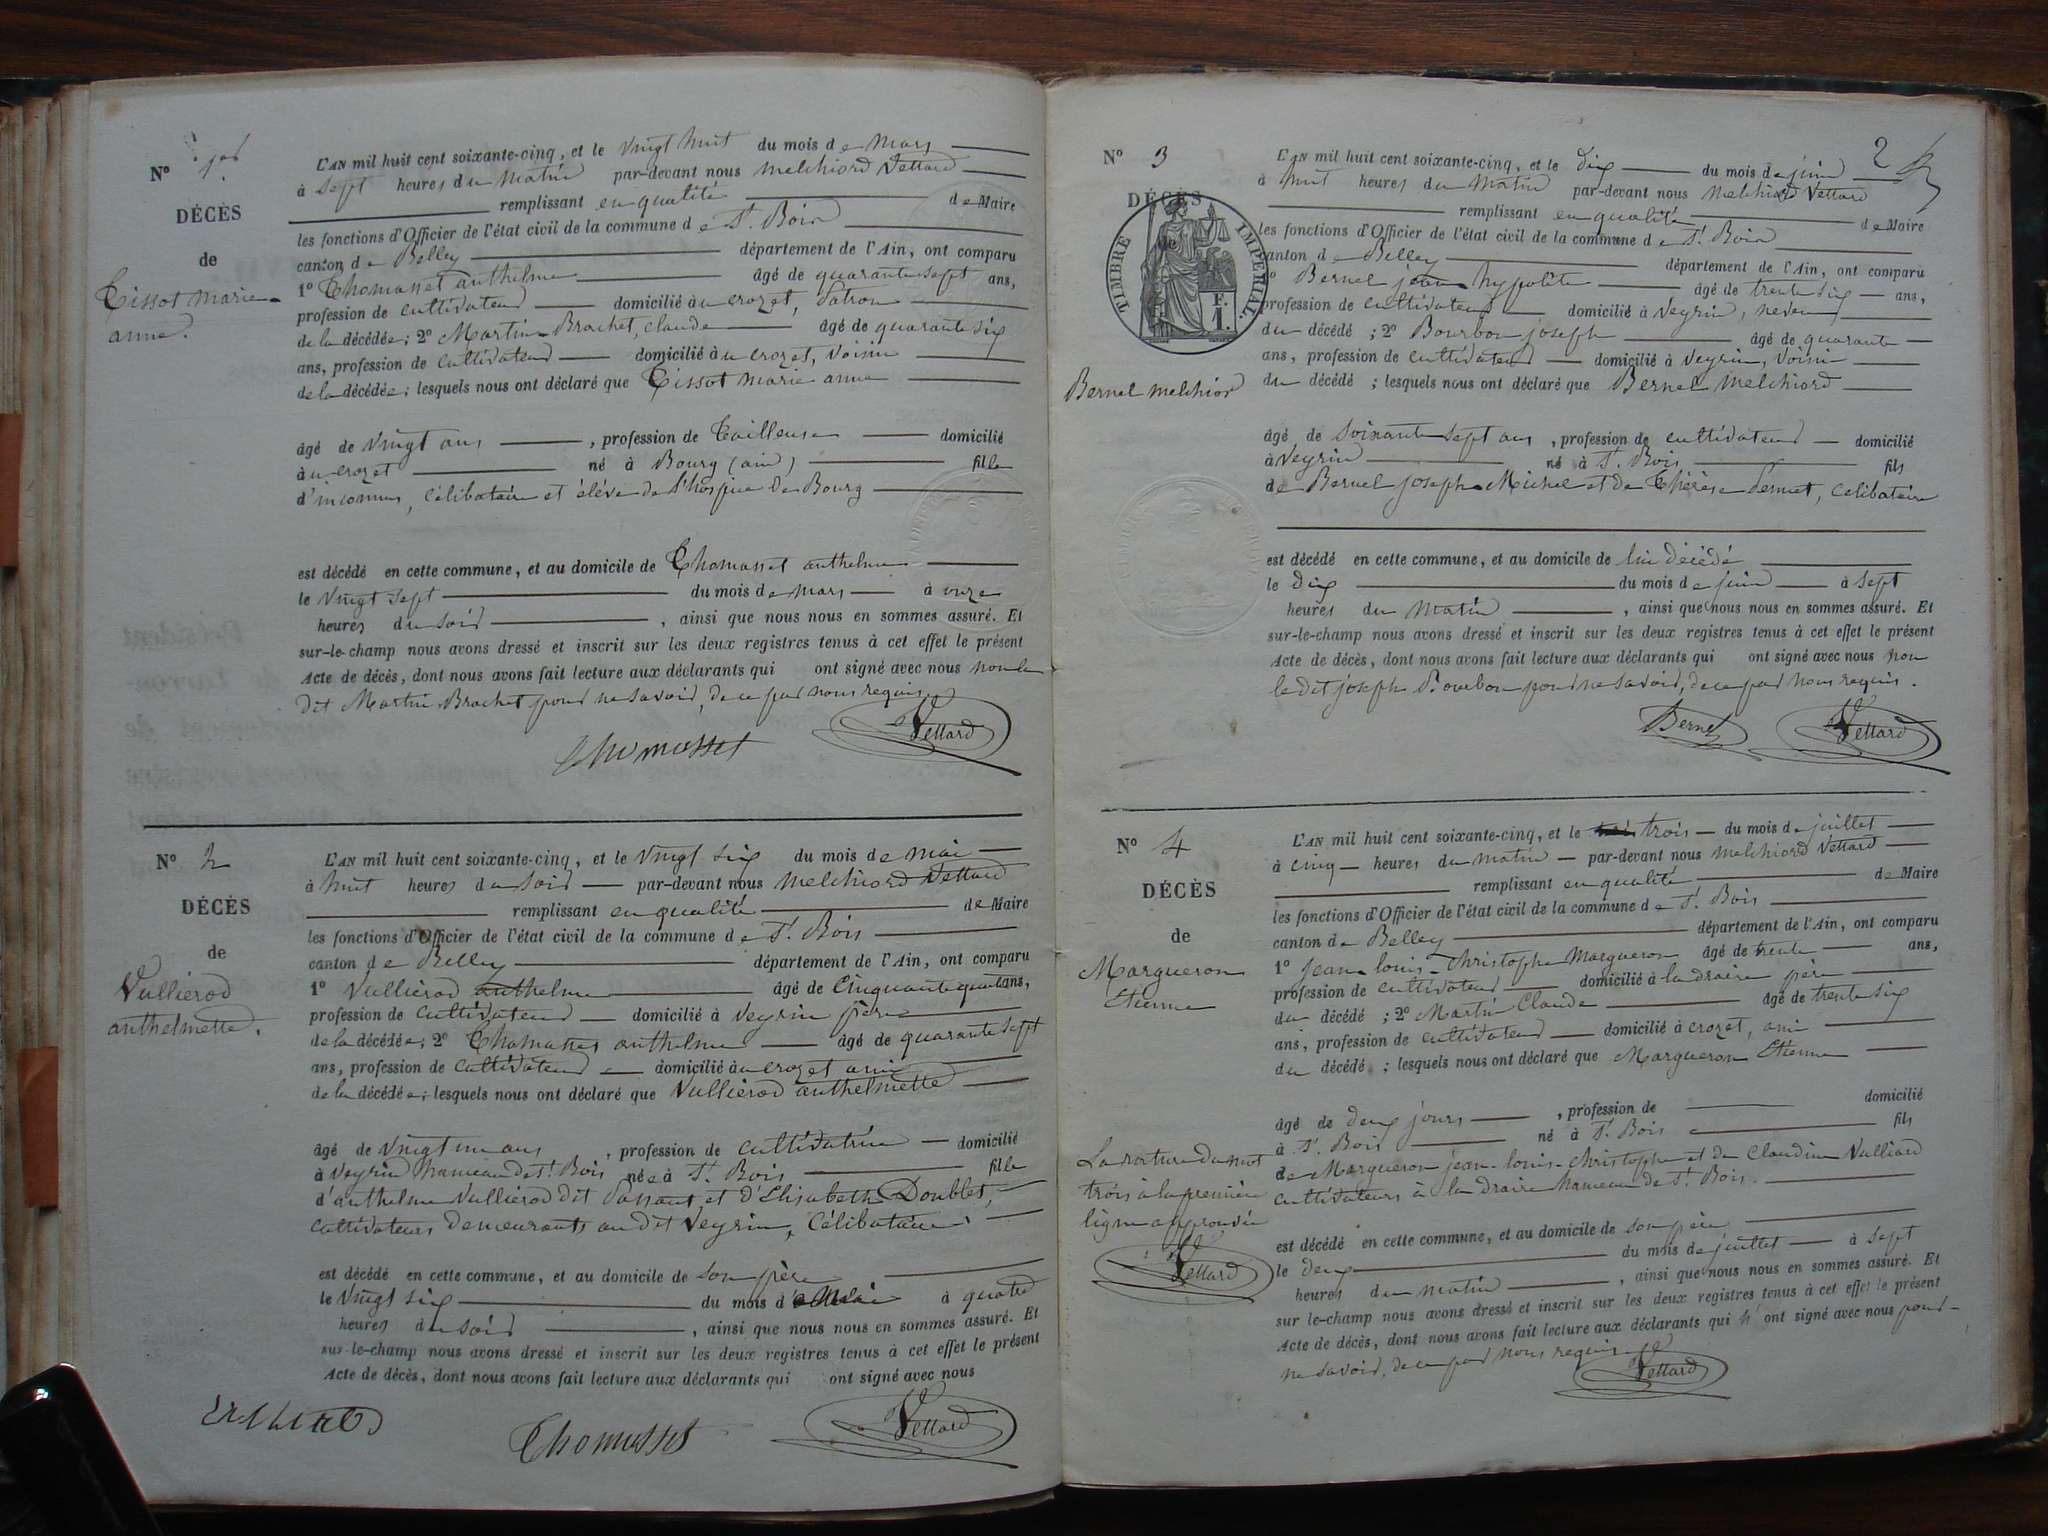 Nº 1er
DÉCÈS
de
Tissot marie
anne.
L'AN mil huit cent soixante-cinq, et le vingt huit du mois de Mars
à Sept heures du Matin par-devant nous Melchiord Vettard
remplissant en qualité de Maire
les fonctions d'Officier de l'état civil de la commune de St. Bois
canton de Belley département de l'Ain, ont comparu
1º Thomasset anthelme âgé de quarante sept ans,
profession de cultivateur domicilié à u crozet, Patron
de la décédée; 2º Martin Brachet, claude âgé de quarante six
ans, profession de cultivateur domicilié à u crozet, voisin
de la décédée; lesquels nous ont déclaré que Tissot marie anne
âgé de vingt ans , profession de Tailleuse domicilié
à u crozet né à Bourg (ain) fille
d'inconnus, célibataire et élève de l'hospice de Bourg
est décédé en cette commune, et au domicile de Thomasset anthelme
le vingt sept du mois de mars à onze
heures du soir , ainsi que nous nous en sommes assuré. Et
sur-le-champ nous avons dressé et inscrit sur les deux registres tenus à cet effet le présent
Acte de décès, dont nous avons fait lecture aux déclarants qui ont signé avec nous non le
dit Martin Brachet pour ne savoir, de ce par nous requis
Thomasset Vettard
Nº 2
DÉCÈS
de
Vulliérod
anthelmette.
L'AN mil huit cent soixante-cinq, et le vingt six du mois de mai
à huit heures du soir par-devant nous Melchiord Vettard
remplissant en qualité de Maire
les fonctions d'Officier de l'état civil de la commune de St. Bois
canton de Belley département de l'Ain, ont comparu
1º Vulliérod anthelme âgé de cinquante quatre ans,
profession de cultivateur domicilié à Veyrin père
de la décédée; 2º Thomasset anthelme âgé de quarante sept
ans, profession de cultivateur domicilié à u crozet ami
de la décédée; lesquels nous ont déclaré que Vulliérod anthelmette
âgé de vingt un ans , profession de cultivatrice domicilié
à Veyrin hameau de St. Bois née à St. Bois fille
d'anthelme Vulliérod dit Passant, et d'Elisabeth Doublet,
cultivateurs demeurants au dit Veyrin, célibataire
est décédé en cette commune, et au domicile de son père
le vingt six du mois de Mai à quatre
heures du soir , ainsi que nous nous en sommes assuré. Et
sur-le-champ nous avons dressé et inscrit sur les deux registres tenus à cet effet le présent
Acte de décès, dont nous avons fait lecture aux déclarants qui ont signé avec nous
Thomasset Vettard
2
Nº 3
DÉCÈS
de
TIMBRE IMPERIAL.
F.
1.
Bernel Melchior
L'AN mil huit cent soixante-cinq, et le dix du mois de juin
à huit heures du Matin par-devant nous Melchiord Vettard
remplissant en qualité de Maire
les fonctions d'Officier de l'état civil de la commune de St. Bois
canton de Belley département de l'Ain, ont comparu
1º Bernel jean hypolite âgé de trente six ans,
profession de cultivateur domicilié à Veyrin, neveu
du décédé; 2º Bourbon joseph âgé de quarante
ans, profession de cultivateur domicilié à Veyrin, voisin
du décédé; lesquels nous ont déclaré que Bernel Melchiord
âgé de soixante sept ans , profession de cultivateur domicilié
à Veyrin né à St. Bois fils
de Bernel joseph Michel et de Thérèse Pernet, célibataire
est décédé en cette commune, et au domicile de lui décédé
le dix du mois de juin à sept
heures du Matin , ainsi que nous nous en sommes assuré. Et
sur-le-champ nous avons dressé et inscrit sur les deux registres tenus à cet effet le présent
Acte de décès, dont nous avons fait lecture aux déclarants qui ont signé avec nous non
le dit joseph Bourbon pour ne savoir, de ce par nous requis.
Bernel Vettard
Nº 4
DÉCÈS
de
Margueron
Etienne
L'AN mil huit cent soixante-cinq, et le trois du mois de juillet
à cinq heures du matin par-devant nous Melchiord Vettard
remplissant en qualité de Maire
les fonctions d'Officier de l'état civil de la commune de St. Bois
canton de Belley département de l'Ain, ont comparu
1º jean-louis-christophe Margueron âgé de trente ans,
profession de cultivateur domicilié à la draire père
du décédé; 2º Martin Claude âgé de trente six
ans, profession de cultivateur domicilié à crozet, ami
du décédé; lesquels nous ont déclaré que Margueron Etienne
âgé de deux jours , profession de domicilié
à St. Bois né à St. Bois fils
de Margueron jean-louis-christophe et de Claudine Vulliard
cultivateurs à la draire hameau de St. Bois.
est décédé en cette commune, et au domicile de son père
le deux du mois de juillet à sept
heures du matin , ainsi que nous nous en sommes assuré. Et
sur le-champ nous avons dressé et inscrit sur les deux registres tenus à cet effet le présent
Acte de décès, dont nous avons fait lecture aux déclarants qui n'ont signé avec nous pour
ne savoir, de ce par nous requis
Vettard
La rature du mot
trois à la première
ligne approuvée
Vettard